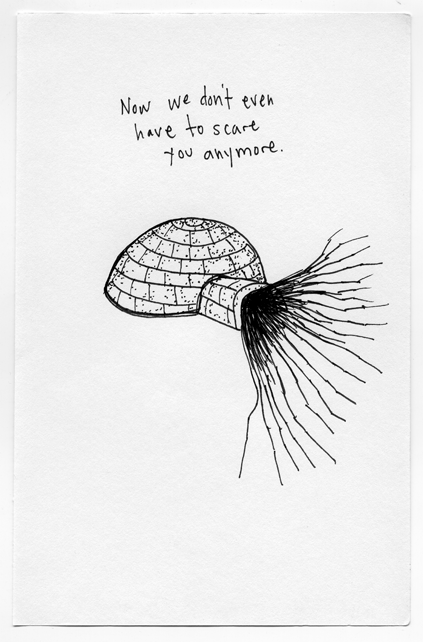 Now we don't even
have to scare
you anymore.